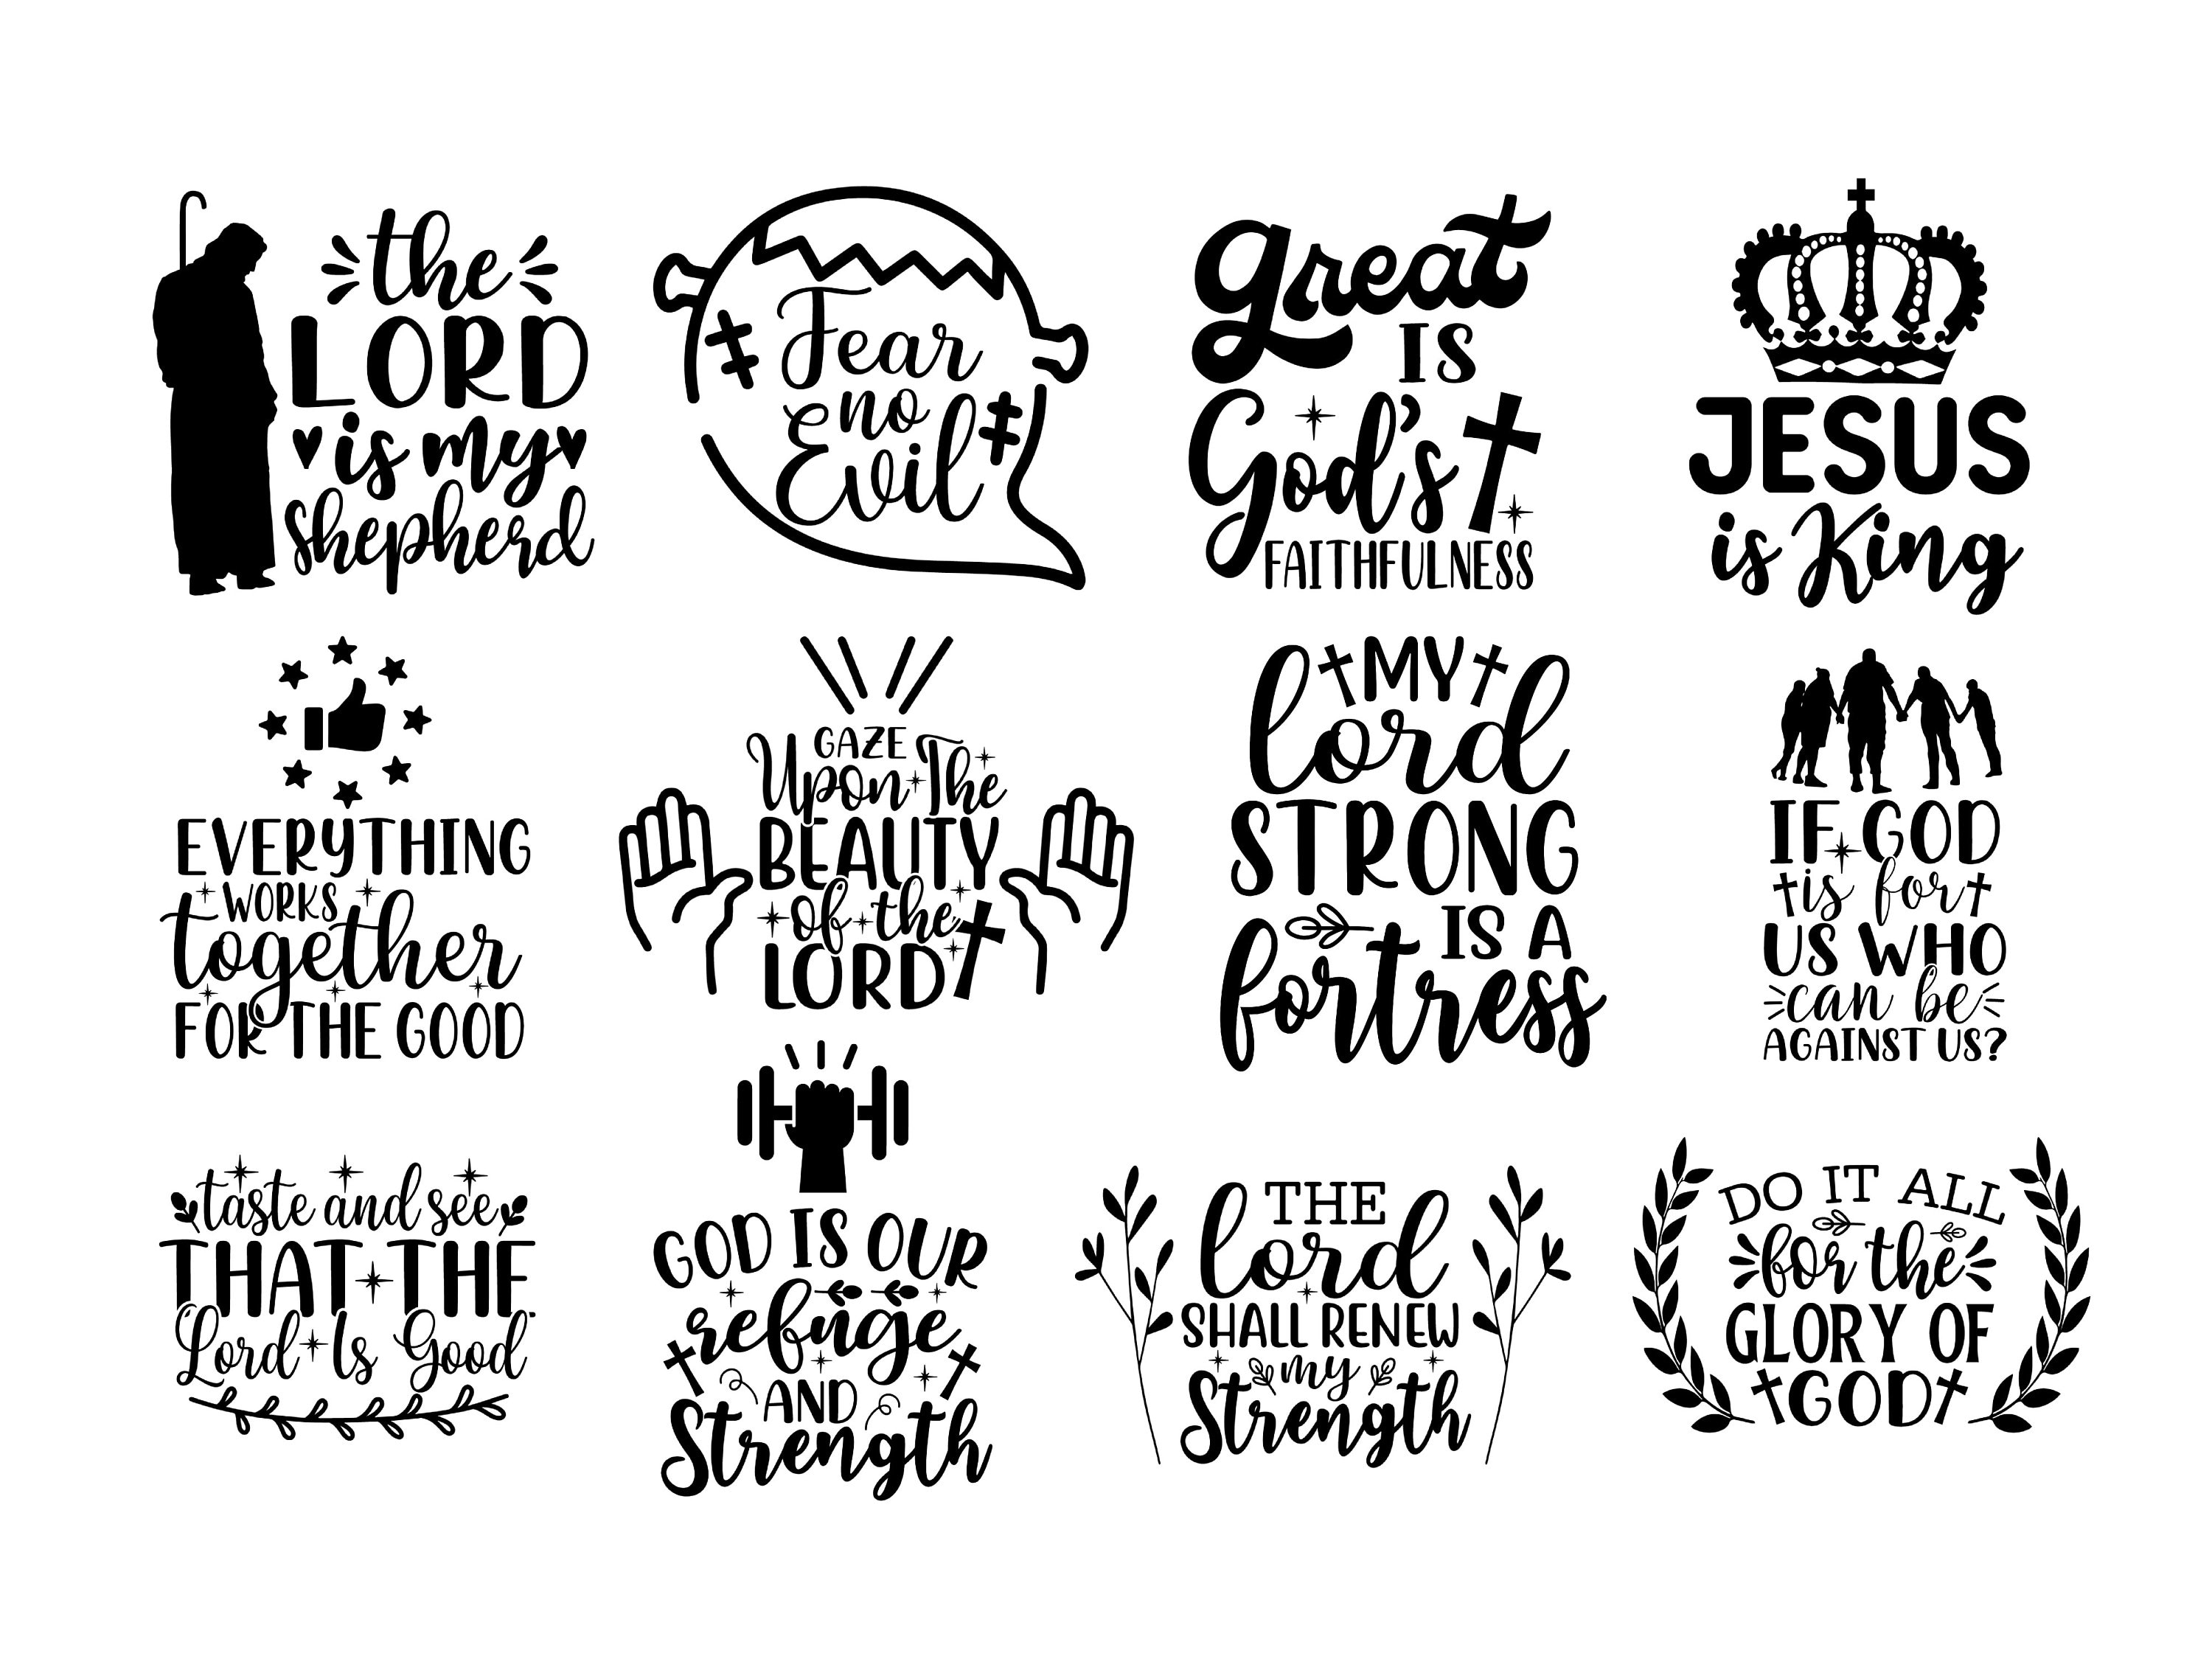 the
LORD
is my
shepherd
Fear
no
Evil
great
IS
God's
FAITHFULNESS
JESUS
is King
EVERYTHING
WORKS
together
FOR THE GOOD
GAZE
Upon The
BEAUTY
of the
LORD
MY
lord
STRONG
IS A
fortress
IF GOD
is for
US WHO
can be
AGAINST US?
taste and see
THAT THE
Lord Is Good
GOD IS OUR
refuge
AND
Strength
THE
lord
SHALL RENEW
my
Strength
DO IT ALL
for the
GLORY OF
GOD